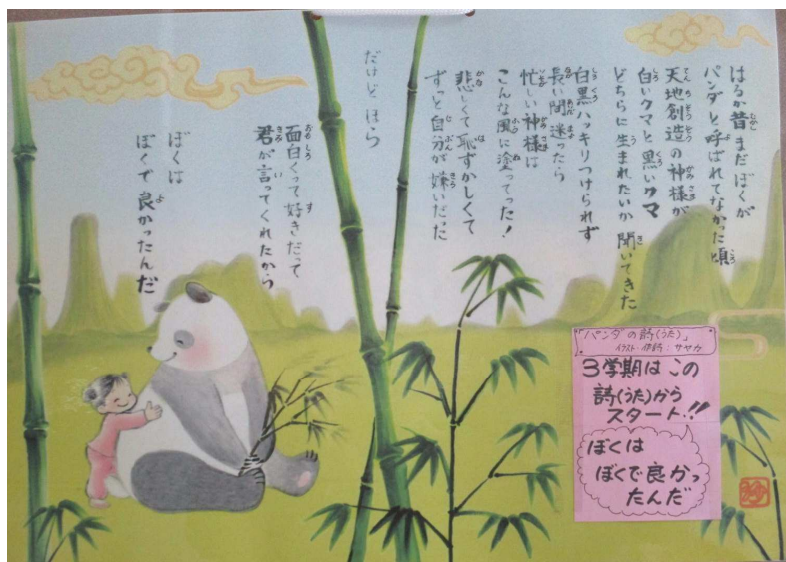 はるか昔まだぼくが
パンダと呼ばれてなかった頃
天地創造の神様が
白いクマと黒いクマ
どちらに生まれたいか聞いてきた
白黒ハッキリつけられず
長い間迷ったら
忙しい神様は
こんな風に塗ってった!
悲しくて恥ずかしくて
ずっと自分が嫌いだった
だけど ほら
面白くって好きだって
君が言ってくれたから
ぼくは
ぼくで良かったんだ
「パンダの詩(うた)」
イラスト・作詩:サヤカ
3学期はこの
詩(うた)から
スタート!!
ぼくは
ぼくで良かっ
たんだ